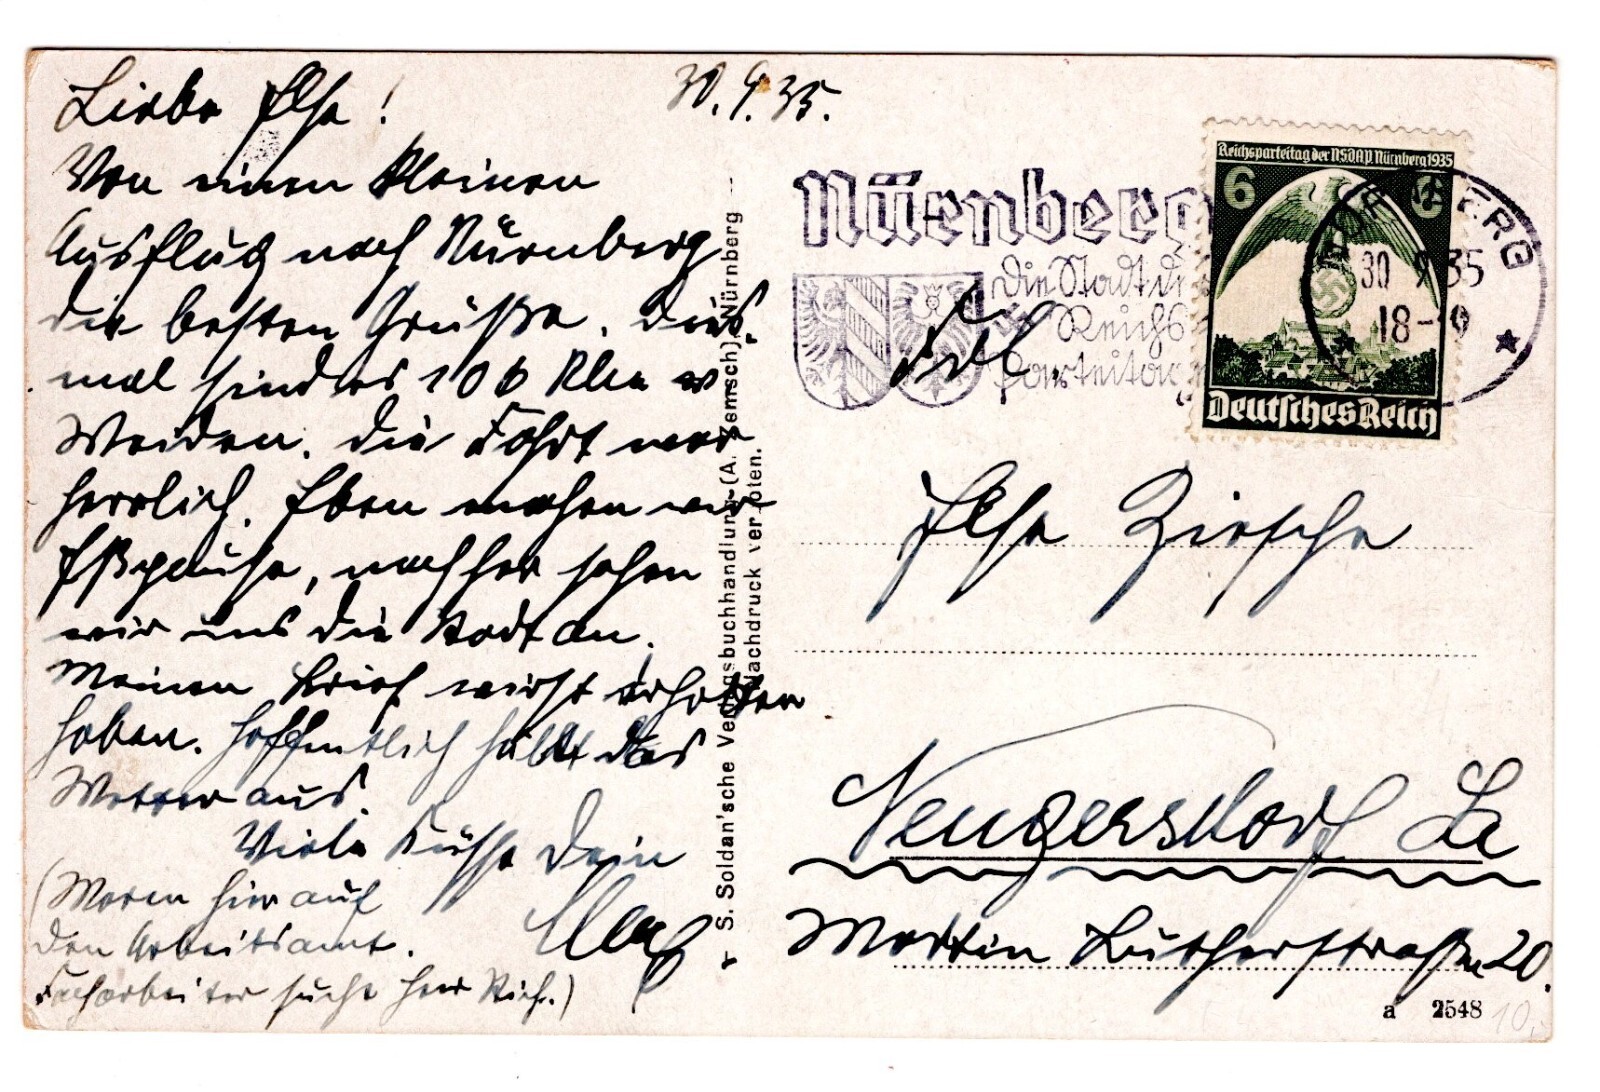 Liebe Ilse!
30.9.35.
Von einen kleinen
Ausflug nach Nürnberg
die besten Grüße. Dies-
mal sind es 106 Klm v
Weiden. Die Fahrt war
herrlich. Eben machen wir
Eßpause, nachher sehen
wir uns die Stadt an.
Meinen Brief wirst erhalten
haben. Hoffentlich hält das
Wetter aus.
Viele Küsse Dein
(Waren hier auf
den Arbeitsamt.
Facharbeiter sucht Herr
S. Soldan'sche Verlagsbuchhandlung (A. Zemsch) Nürnberg
Nachdruck verboten.
Nürnberg
Die Stadt der
Reichs
parteitage
Reichsparteitag der NSDAP. Nürnberg 1935
6 6
Deutsches Reich
NÜRNBERG
30 9 35
18-19
Frl.
Ilse Zirsche
Neugersdorf Sa
Martin Lutherstraße 20.
a 2548
10,-